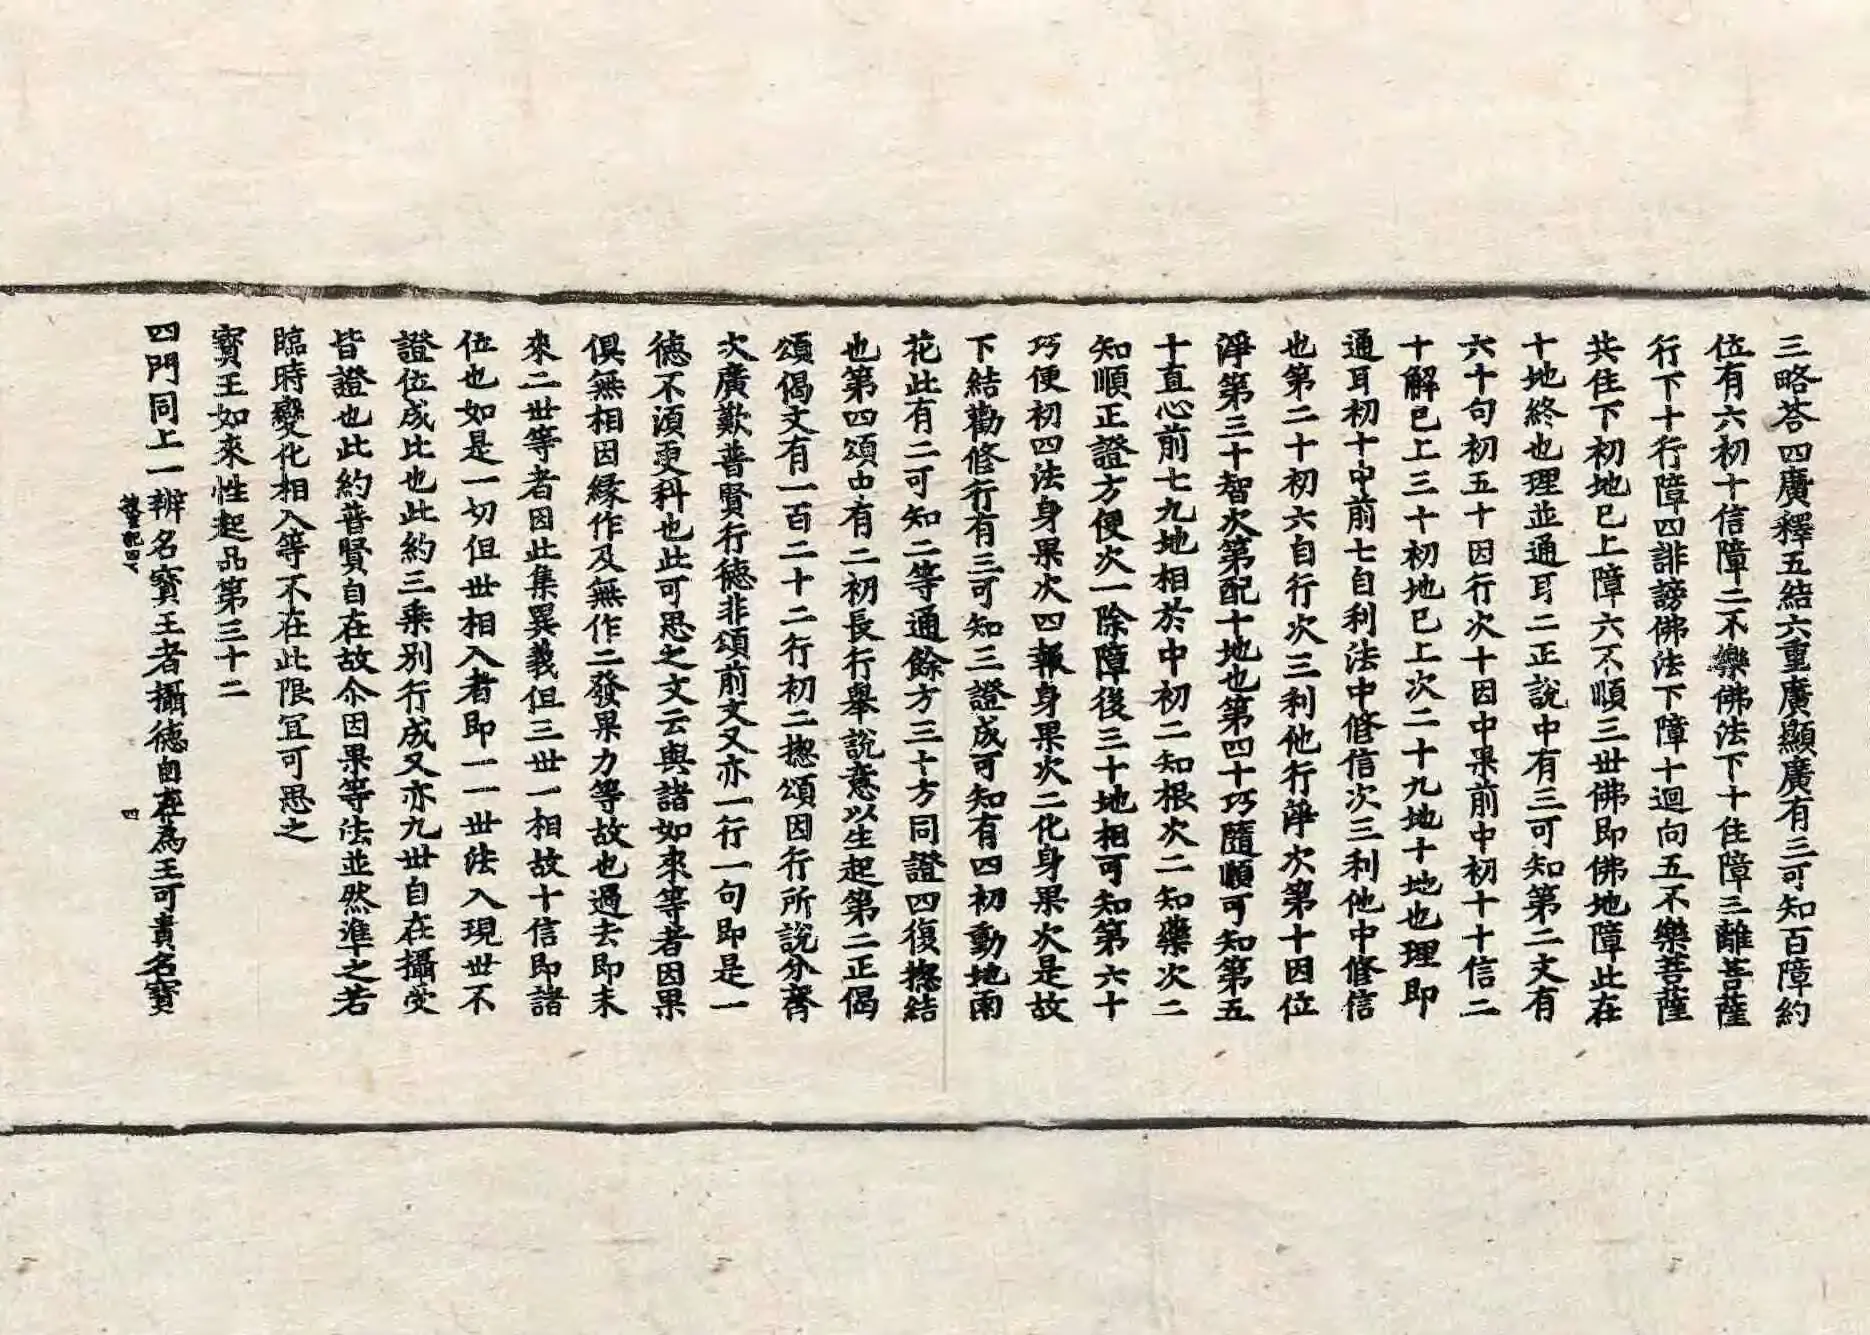 三略荅四廣釋五結六重廣顯廣有三可知百障約
位有六初十信障二不樂佛法下十住障三離菩薩
行下十行障四誹謗佛法下障十迴向五不樂菩薩
共住下初地已上障六不順三世佛即佛地障此在
十地終也理並通耳二正說中有三可知第二文有
六十句初五十因行次十因中果前中初十十信二
十解已上三十初地已上次二十九地十地也理即
通耳初十中前七自利法中修信次三利他中修信
也第二十初六自行次三利他行淨次第十因位
淨第三十智次第配十地也第四十巧隨順可知第五
十直心前七九地相於中初二知根次二知藥次二
知順正證方便次一除障後三十地相可知第六十
巧便初四法身果次四報身果次二化身果次是故
下結勸修行有三可知三證成可知有四初動地雨
花此有二可知二等通餘方三十方同證四復揔結
也第四頌中有二初長行舉說意以生起第二正偈
頌偈文有一百二十二行初二揔頌因行所說分齊
次廣歎普賢行德非頌前文又亦一行一句即是一
德不湏更科也此可思之文云與諸如來等者因果
俱無相因緣作及無作二發果力等故也過去即未
來二世等者因此集異義但三世一相故十信即諸
位也如是一切但世相入者即一一世法入現世不
證位成比也此約三乘別行成又亦九世自在攝受
皆證也此約普賢自在故尒因果等法並然准之若
臨時變化相入等不在此限冝可思之
寳王如來性起品第三十二
四門同上一辨名寳王者攝德自在為王可貴名寳
四